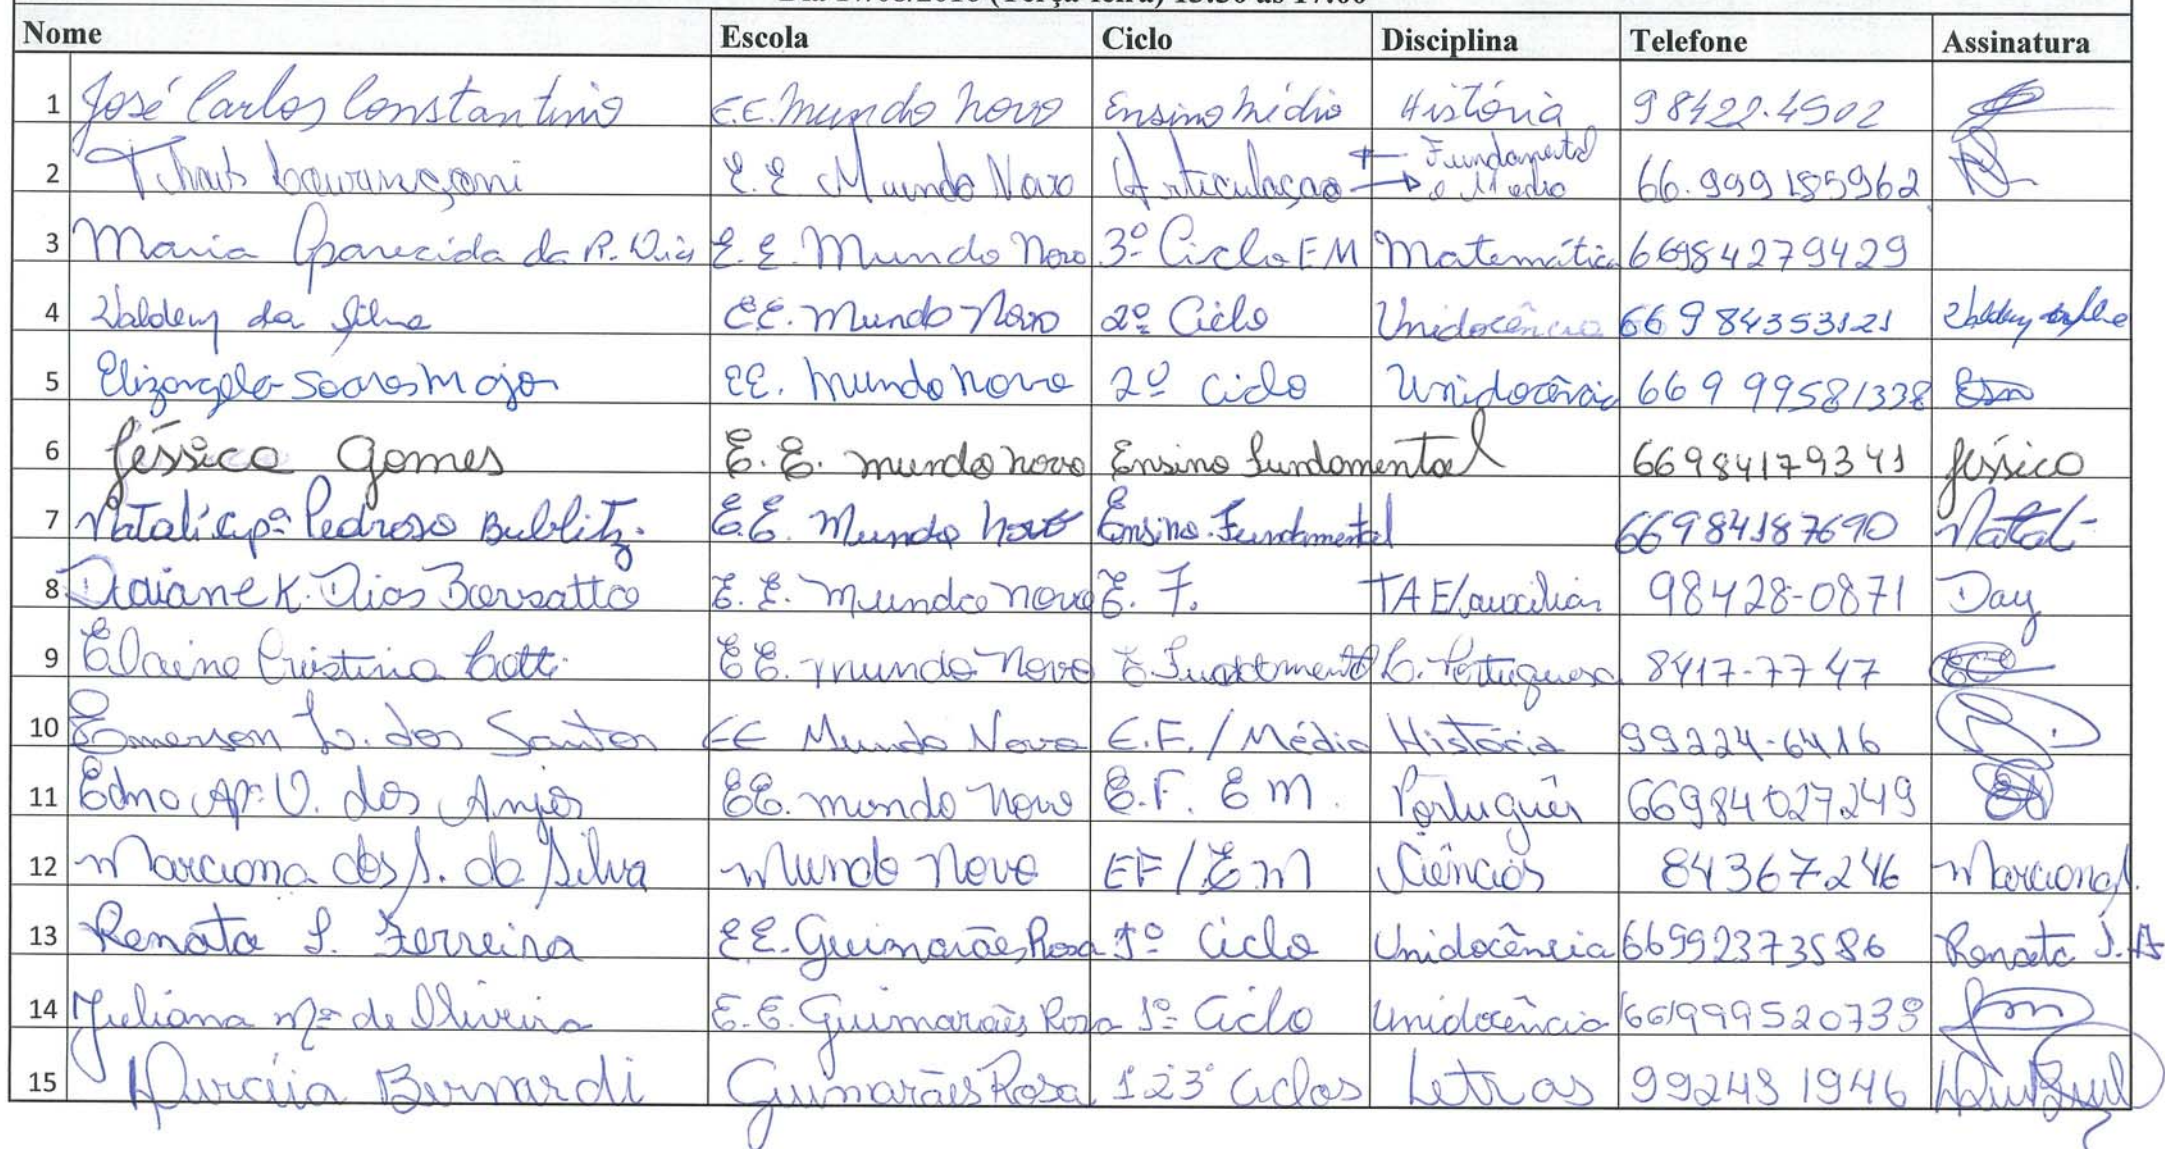 Nome Escola Ciclo Disciplina Telefone Assinatura
1 José Carlos Constantino E.E. Mundo Novo Ensino Médio História 98422.4502
2 E.E Mundo Novo Articulaçao Fundamental e Medio 66.999185962
3 Maria Aparecida da R. E.E. Mundo Novo 3º Ciclo EM Matemática 66984279429
4 da Silva E.E. Mundo Novo 2º Ciclo Unidocência 66984353121
5 Soares E.E. Mundo Novo 2º Ciclo Unidocência 66999581338
6 Jéssica Gomes E.E. mundo novo Ensino fundamental 66984179341 Jéssica
7 Natalí Apª Pedroso Bublitz. E.E. Mundo Novo Ensino Fundamental 66984187690
8 Daiane K. Dias E.E. Mundo novo E. F. TAE/auxiliar 98428-0871 Day
9 Elaine Cristina E.E. mundo Novo L. Portuguesa 8417-7747
10 Emerson L. dos Santos EE Mundo Novo E.F. / Médio História 99224-6416
11 Edna Apª. V. dos Anjos EE. mundo novo E.F. E M. Português 66984027249
12 Marciona dos S. da Silva Mundo Novo EF / EM Ciências 84367246
13 Renata S. Ferreira E.E. Guimarães Rosa 1º Ciclo Unidocência 66992373586 Renata
14 Juliana Mª de Oliveira E.E. Guimarães Rosa 1º Ciclo Unidocência
15 Bernardi Guimarães Rosa 1 2 3º Ciclos Letras 992431946